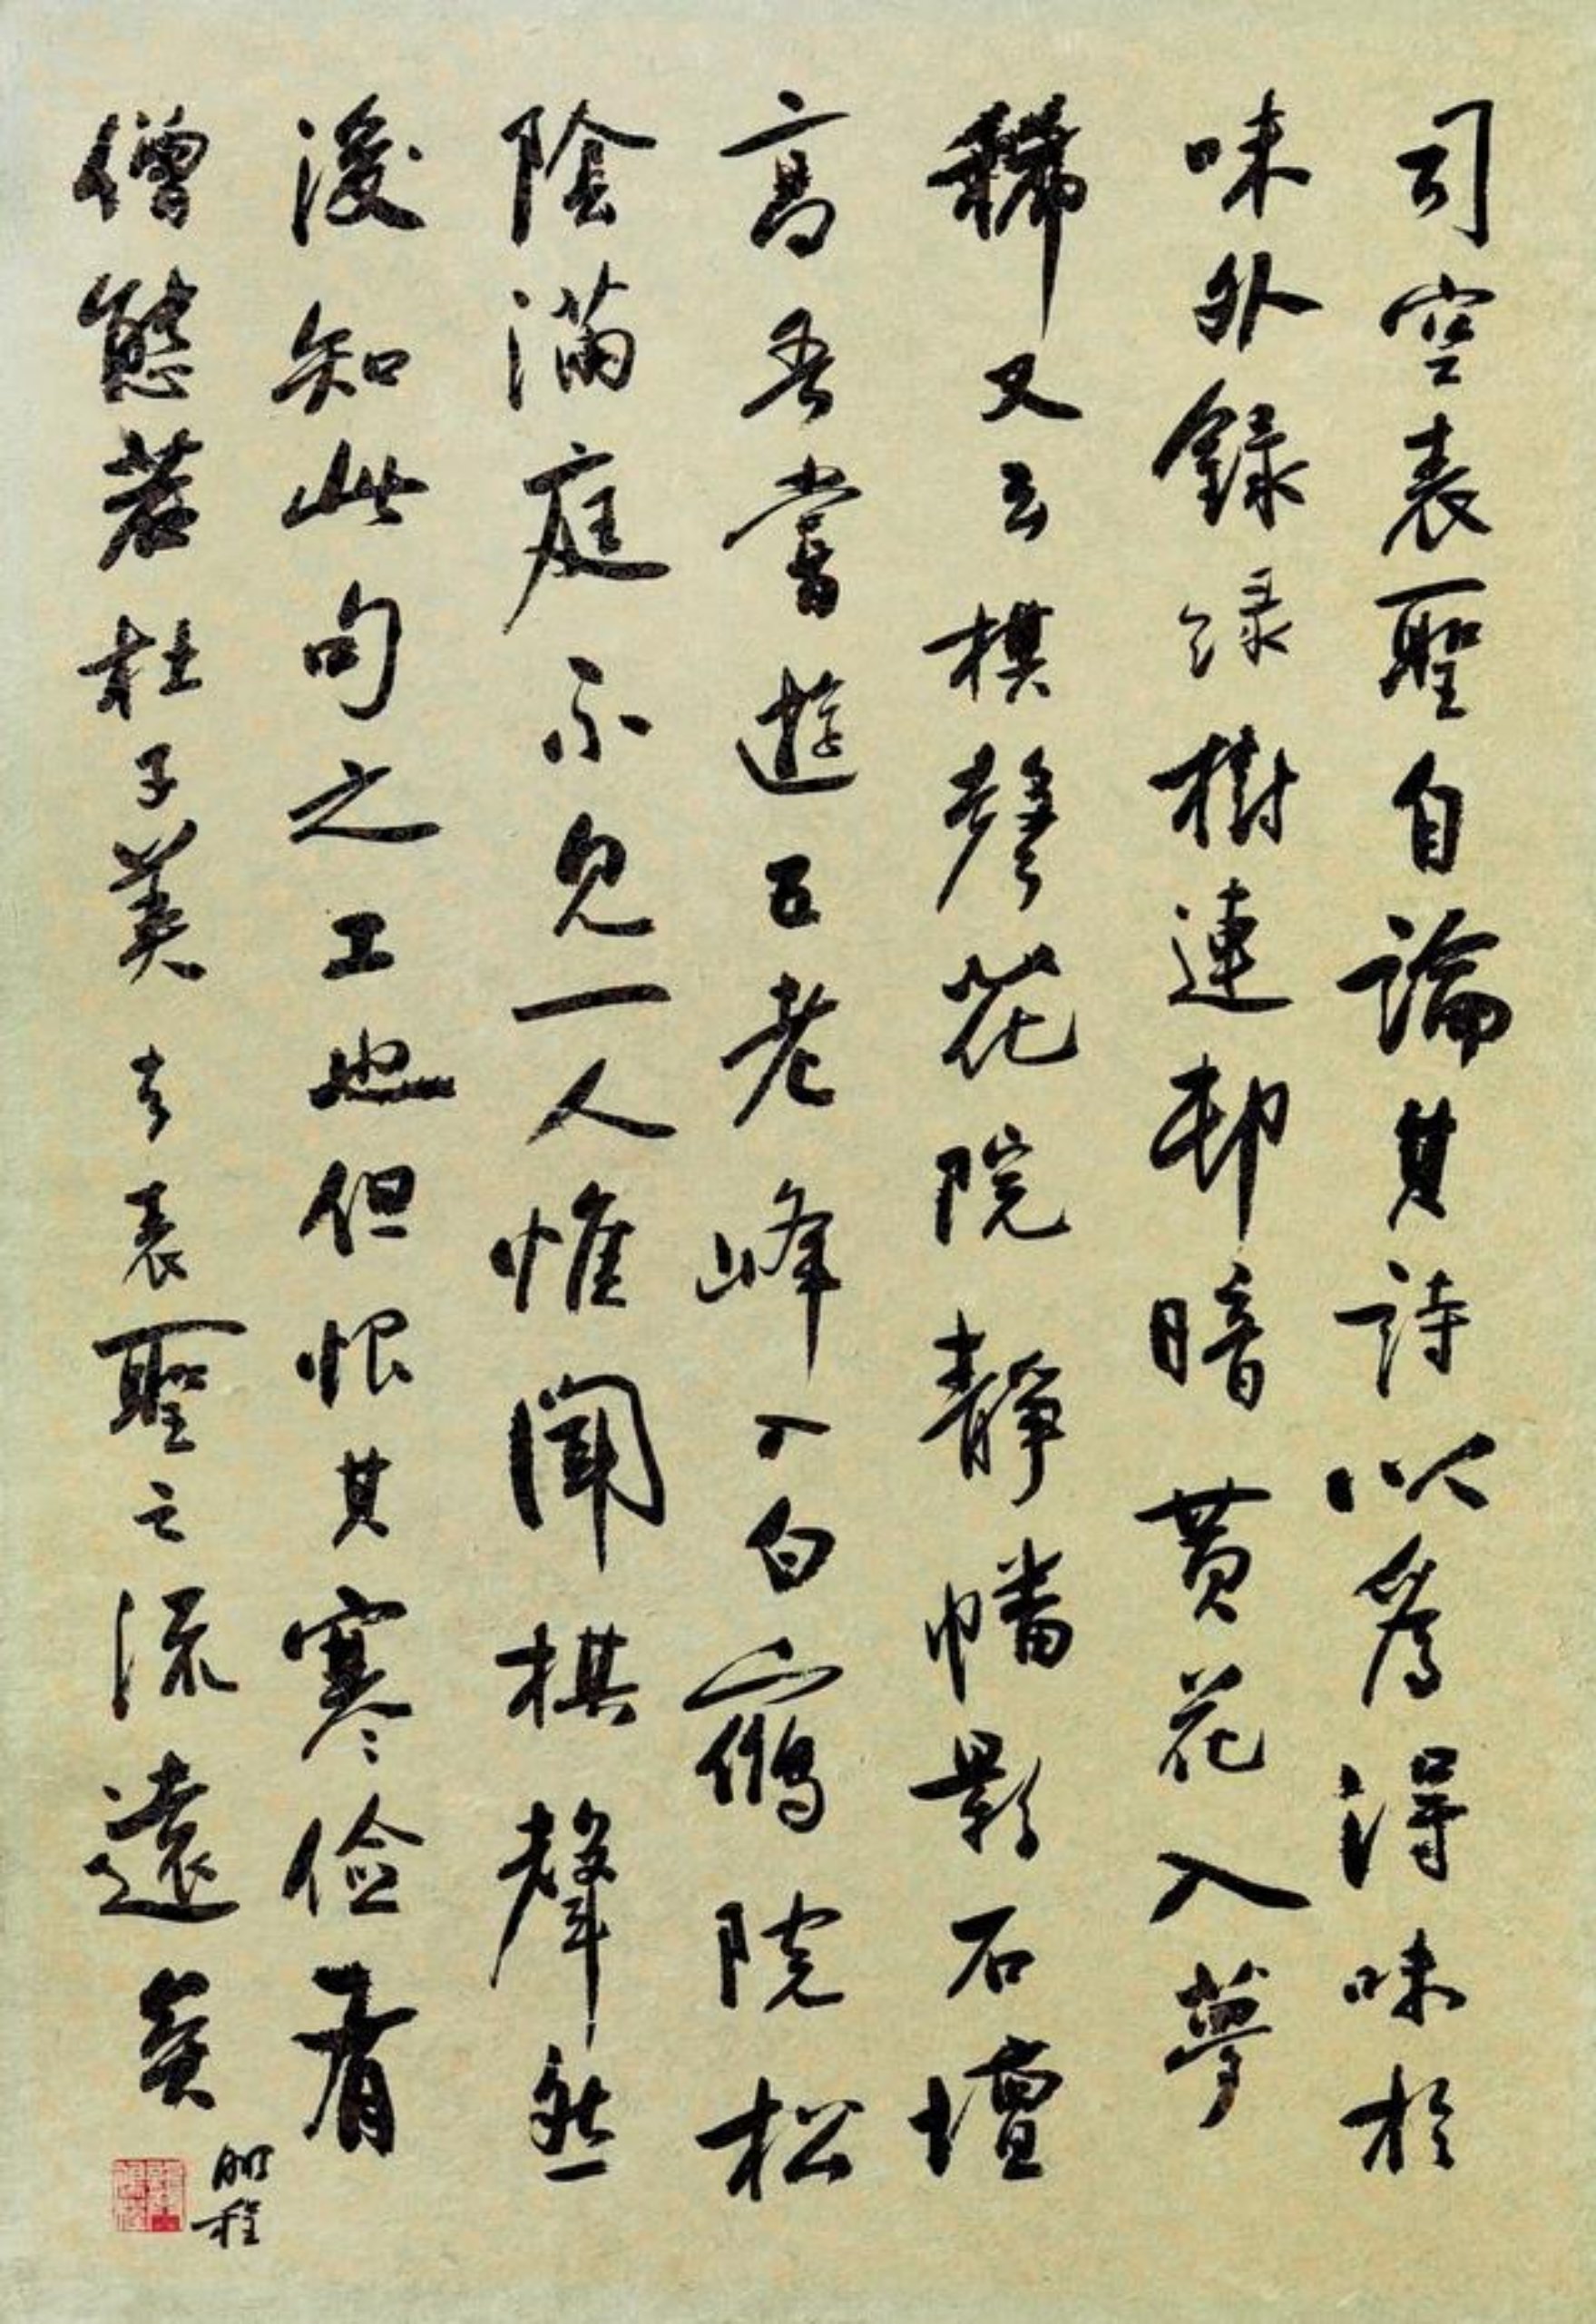 司空表聖自論其詩以爲得味於
味外錄綠樹連邨暗黃花入夢
稀又云棋聲花院靜幡影石壇
高吾嘗遊五老峰入白鶴院松
陰滿庭不見一人惟聞棋聲然
後知此句之工也但恨其寒儉有
僧態若杜子美
表聖之流遠矣